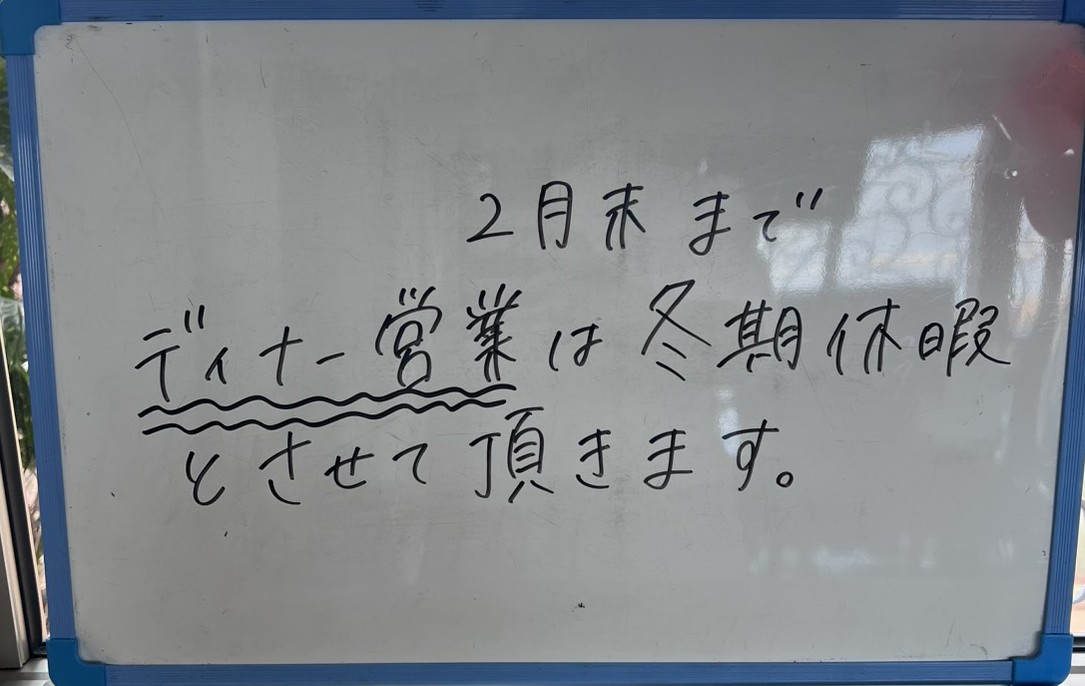 2月末まで
ディナー営業は冬期休暇
とさせて頂きます。